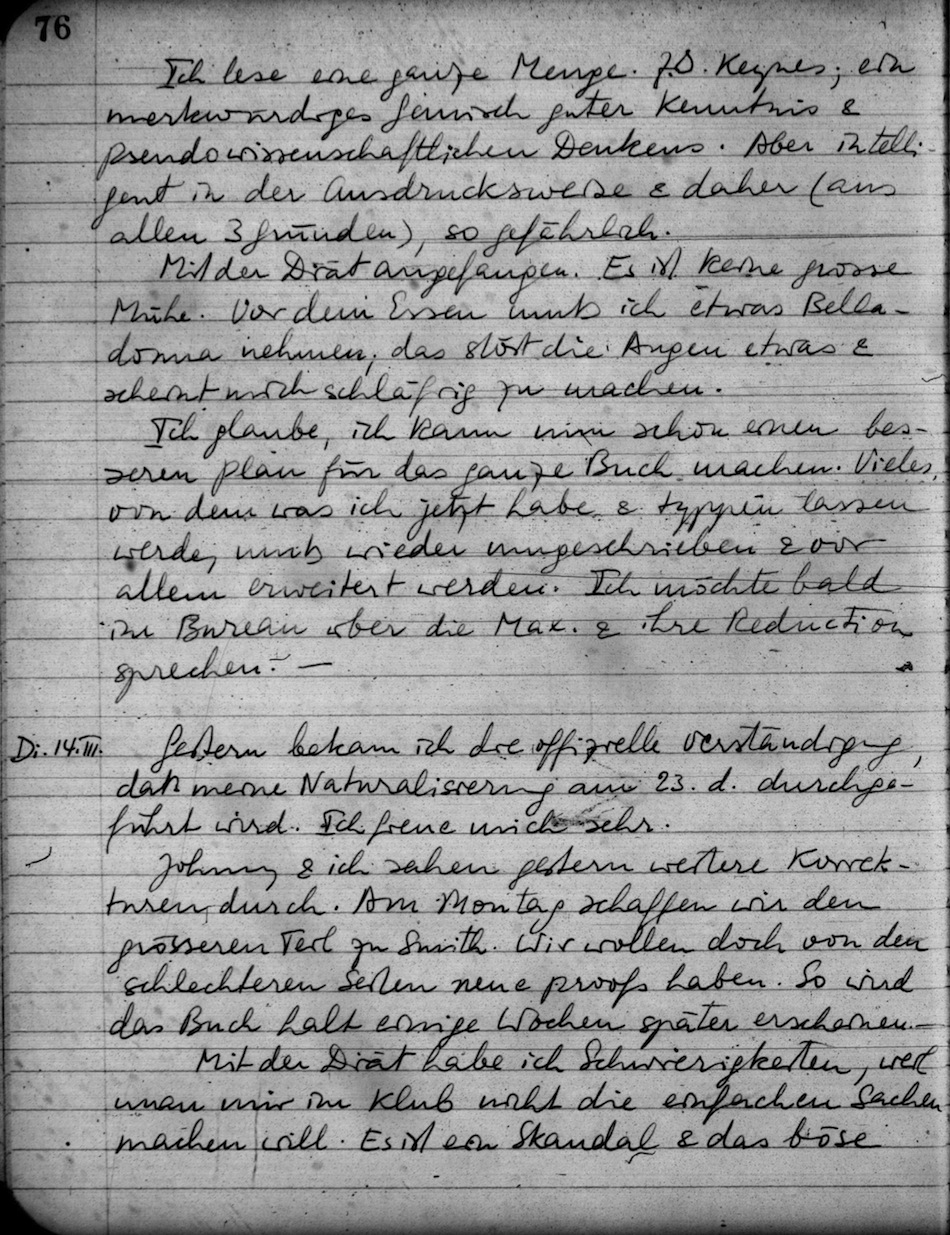 76
Ich lese eine ganze Menge. z.B. Keynes; ein
merkwürdiges Gemisch guter Kenntnis &
pseudowissenschaftlichen Denkens. Aber intelli-
gent in der Ausdrucksweise & daher (aus
allen 3 Gründen), so gefährlich.
Mit der Diät angefangen. Es ist keine grosse
Mühe. Vor dem Essen muss ich etwas Bella-
donna nehmen; das stört die Augen etwas &
scheint mich schläfrig zu machen.
Ich glaube, ich kann nun schon einen bes-
seren Plan für das ganze Buch machen. Vieles,
von dem was ich jetzt habe & typpen lassen
werde, muss wieder umgeschrieben & vor
allem erweitert werden. Ich möchte bald
im Bureau über die Max. & ihre Reduction
sprechen. –
Di. 14.III. Gestern bekam ich die offizielle Verständigung,
daß meine Naturalisierung am 23. d. durchge-
führt wird. Ich freue mich sehr.
Johnny & ich sahen gestern weitere Korrek-
turen durch. Am Montag schaffen wir den
grösseren Teil zu Smith. Wir wollen doch von den
schlechteren Seiten neue proofs haben. So wird
das Buch halt einige Wochen später erscheinen. –
Mit der Diät habe ich Schwierigkeiten, weil
man mir im Klub nicht die einfachen Sachen
machen will. Es ist ein Skandal & das böse